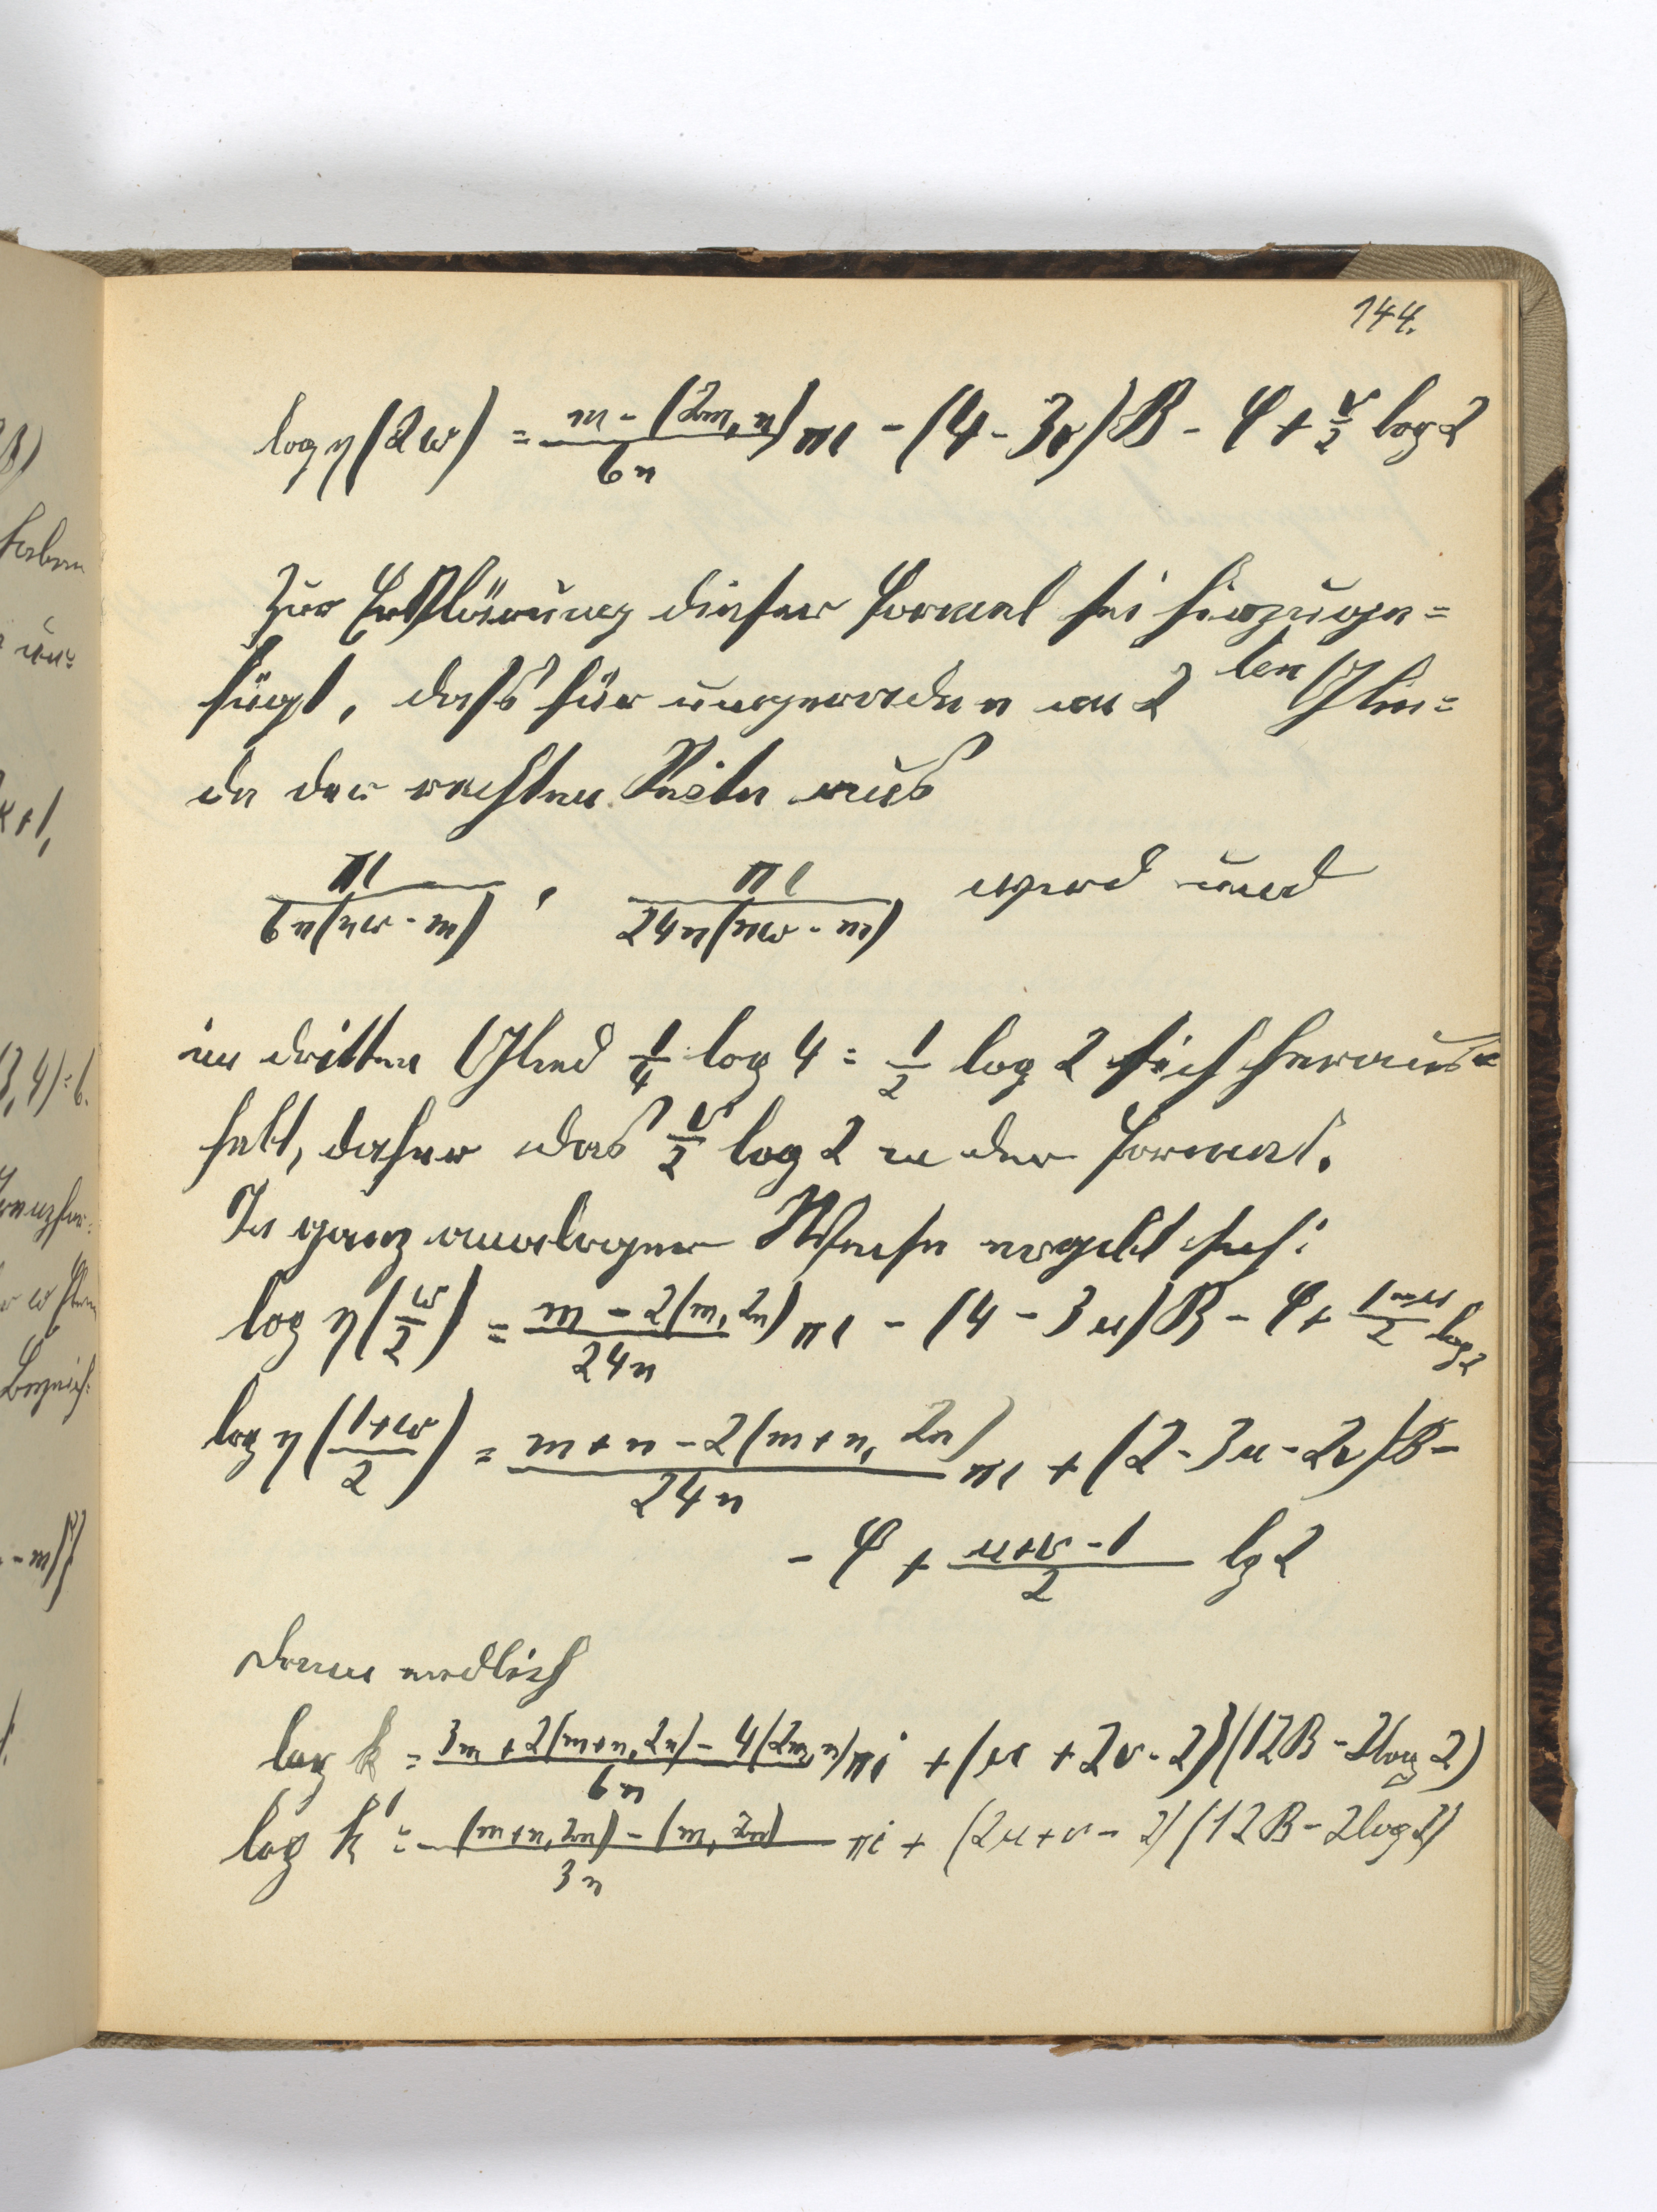 144.
log η(2ω) = (m - (2m, n))/6n πi - (4 - 3v)B - φ + v/2 log 2
Zur Erklärung dieser Formel sei hinzuge=
fügt, daß für ungerade n im 2 ten Glie=
de der rechten Seite aus
πi/6n(nω - m) , πi/24n(nω - m) wird und
im dritten Glied 1/4 log 4 = 1/2 log 2 sich heraus=
hebt, daher das v/2 log 2 in der Formel.
In ganz analoger Weise ergibt sich:
log η(ω/2) = (m - 2(m, 2n))/24n πi - (4 - 3u)B - φ + /2 log 2
log η((1+ω)/2) = (m + n - 2(m + n, 2n))/24n πi + (2 - 3u - 2v)B -
- φ + (u+v - 1)/2 lg 2
dann endlich
log k = (3m + 2(m+n, 2n) - 4(2m, n))/6n πi + (u + 2v - 2)(12B - 2log 2)
log k' = ((m+n, 2n) - (m, 2n))/3n πi + (2u + v - 2)(12B - 2log 2)